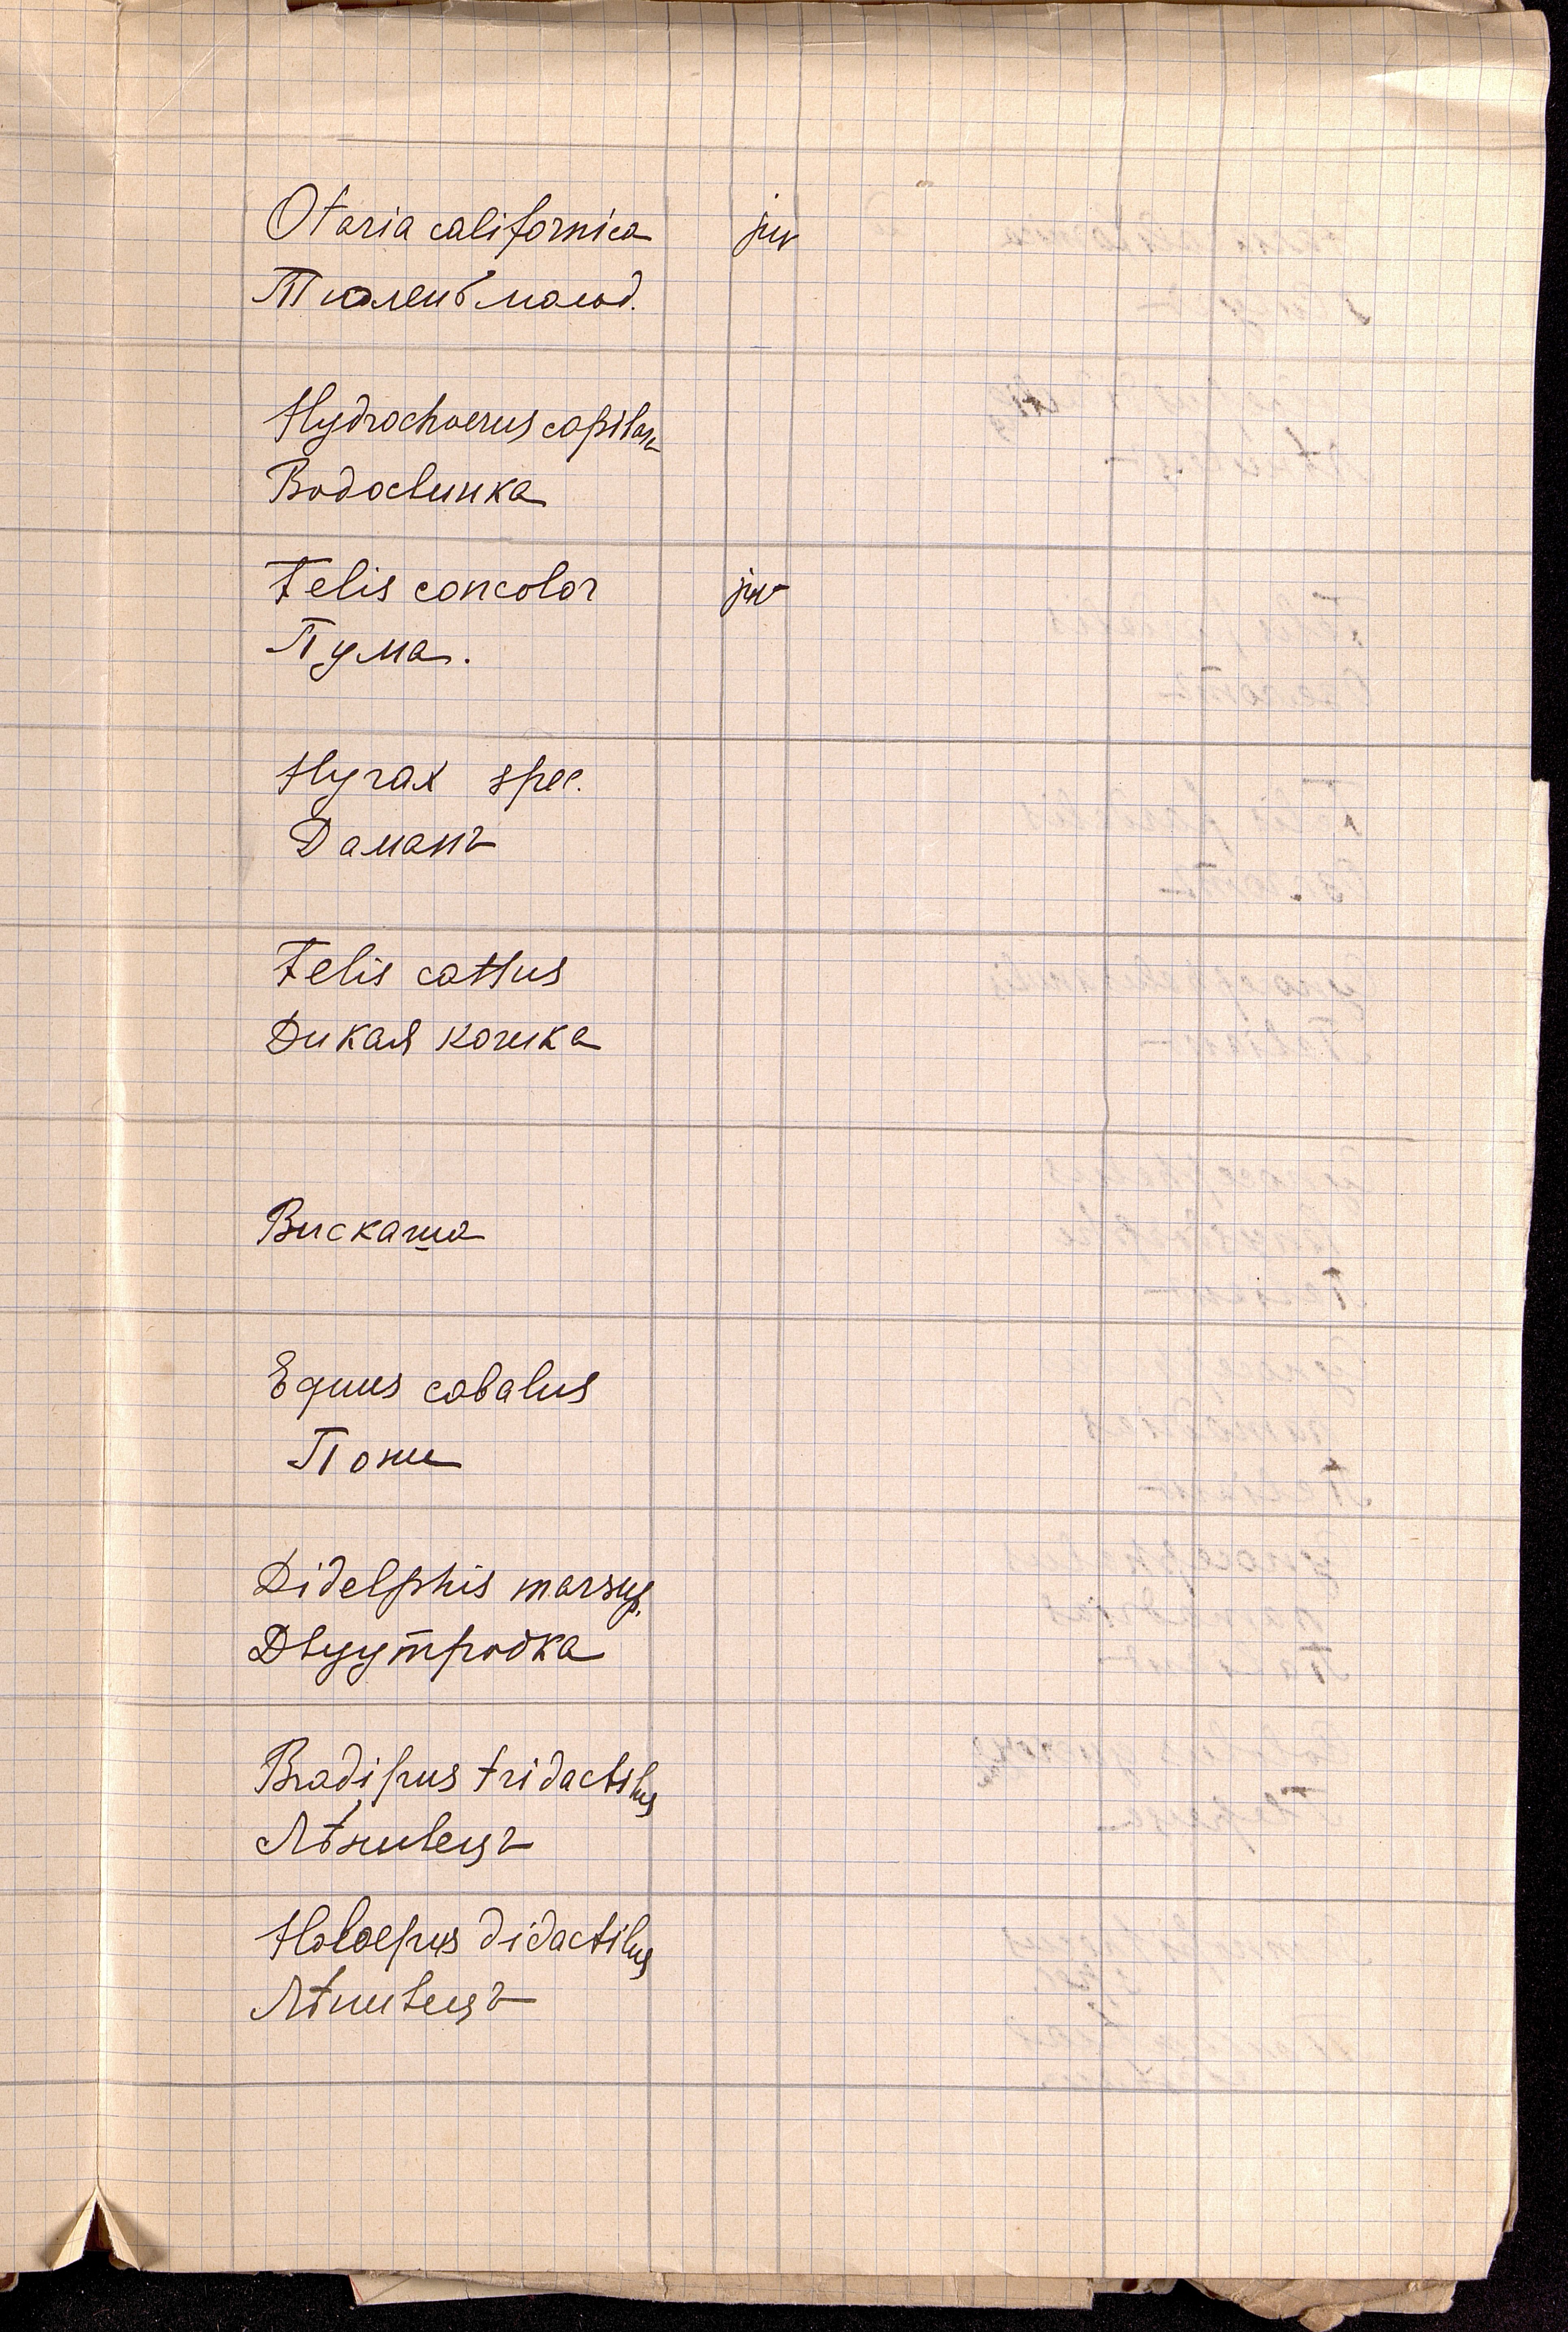 Otaria californica juv
Тюлень молод.
Hydrochoerus capibara
Водосвинка
Felis concolor juv
Пума.
Hyrax spec.
Даманъ
Felis cattus
Дикая кошка
Вискаша
Equus cabalus
Пони
Didelphis marsup.
Двуутробка
Bradipus tridactilus
Лѣнивецъ
Holoepus didactilus
Лѣнивецъ